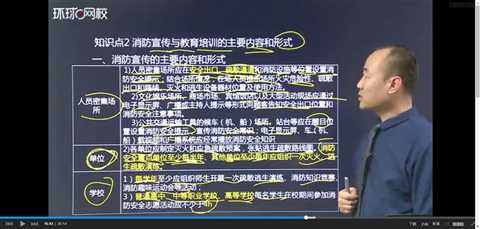 环球网校
知识点2 消防宣传与教育培训的主要内容和形式
一、消防宣传的主要内容和形式
人员密集场所
1)人员密集场所应在安全出口、疏散通道和消防设施等位置设置
消防安全提示，结合场所情况，在场人员提示场所火灾危险性、疏散
出口和路线、灭火和逃生设备器材位置及使用方法。
2)文化娱乐场所、商场市场、宾馆饭店以及大型活动现场应通过
电子显示屏、广播或主持人提示等形式向顾客告知安全出口位置和
消防安全注意事项。
3)公共交通运输工具的候车（机、船）场所、站台等应在醒目位
置设置消防安全提示，宣传消防安全常识；电子显示屏、车（机、
船）载视频和广播系统应经常播放消防安全知识
单位
2)各单位应制定灭火和应急疏散预案，张贴逃生疏散路线图。消防
安全重点单位至少每半年、其他单位至少每年应组织一次灭火、逃
生疏散演练。
学校
1）每学年至少应组织师生开展一次疏散逃生演练、消防知识竞赛、
消防趣味运动会等活动；
3）普通高中、中等职业学校、高等学校每名学生在校期间参加消
防安全志愿活动应不少于4h